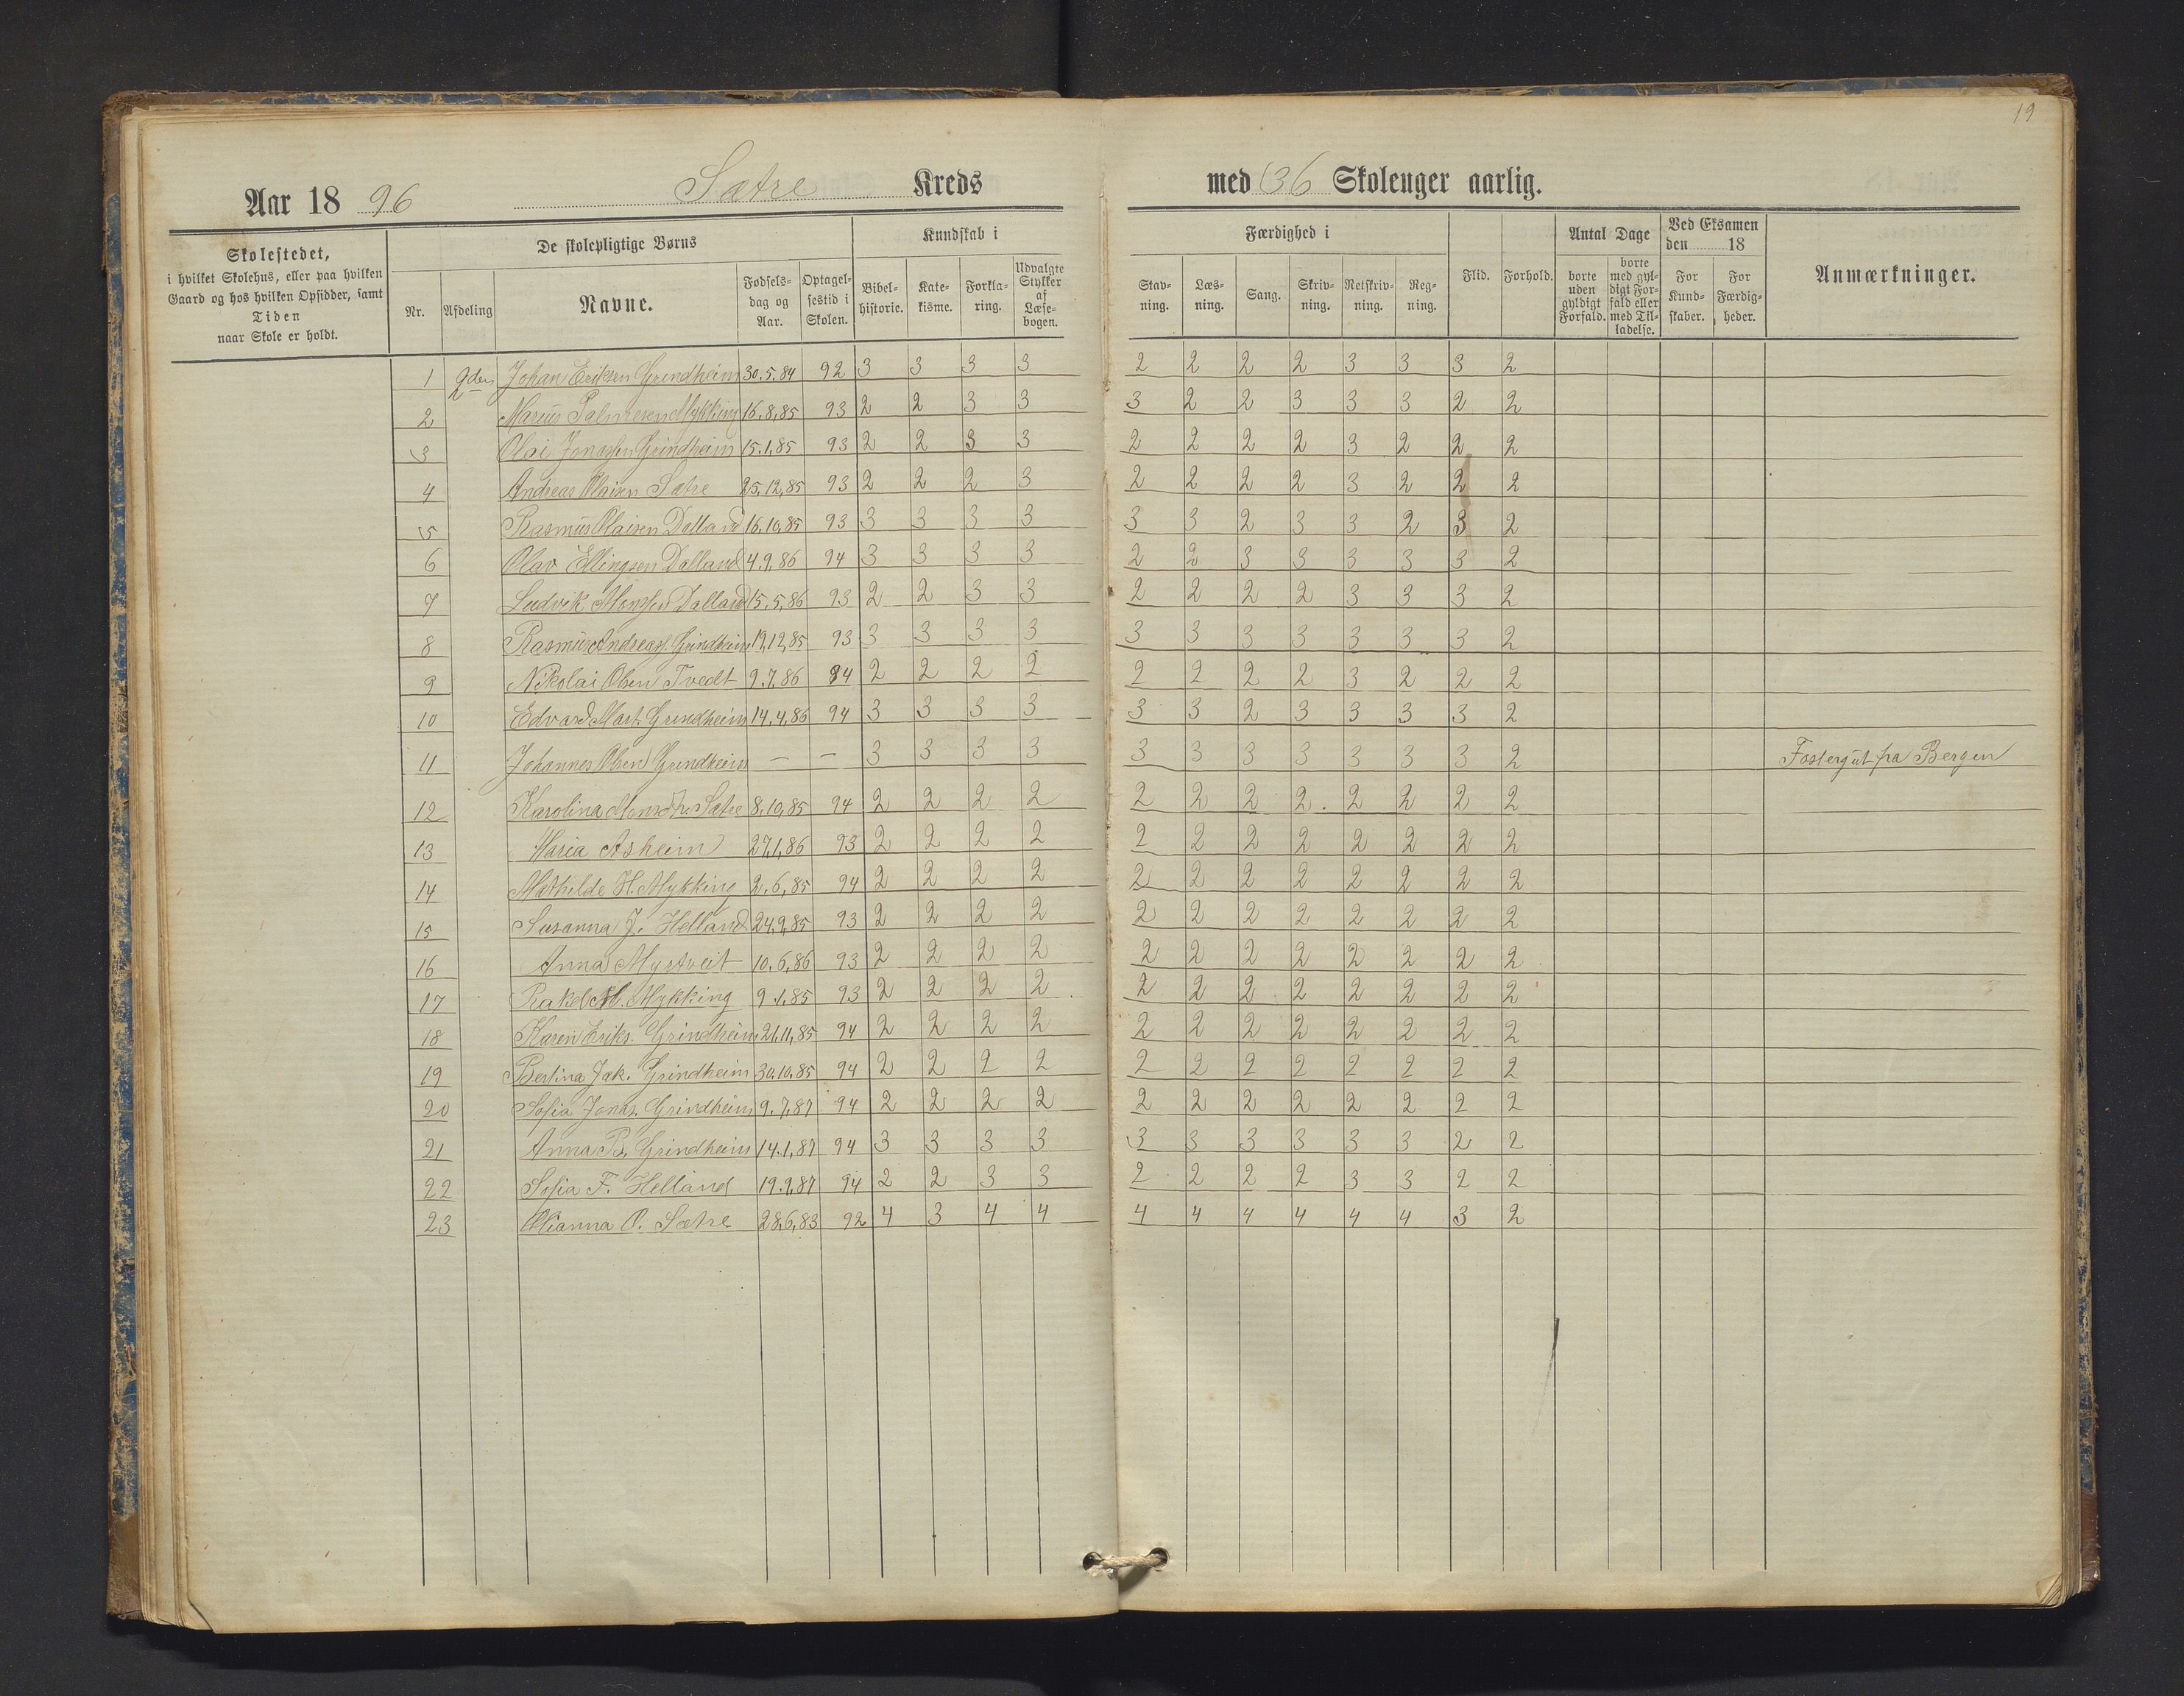 19
Aar 18 96 Sætre Kreds med 36 Skoleuger aarlig.
Skolestedet,
i hvilket Skolehus, eller paa hvilken
Gaard og hos hvilken Opsidder, samt
Tiden
naar Skole er holdt.
De skolepligtige Børns
Nr. Afdeling Navne. Fødsels-dag og Aar. Optagel-sestid i Skolen.
Kundskab i
Bibel-historie. Kate-kisme. Forkla-ring. Udvalgte Stykker af Læse-bogen.
Færdighed i
Stav-ning. Læs-ning. Sang. Skriv-ning. Retskriv-ning. Reg-ning. Flid. Forhold.
Antal Dage
borte uden gyldigt Forfald. borte med gyl-digt For-fald eller med Til-ladelse.
Ved Eksamen den 18
For Kund-skaber. For Færdig-heder.
Anmærkninger.
1 2den Johan Eriksen Grindheim 30.5.84 92 3 3 3 3 2 2 2 2 3 3 3 2
2 Marius Salmesen Mykking 16.8.85 93 2 2 3 3 3 2 2 3 3 3 2 2
3 Olai Jonassen Grindheim 15.1.85 93 2 2 3 3 2 2 2 2 3 2 2 2
4 Andreas Olaisen Sætre 25.12.85 93 2 2 2 3 2 2 2 2 3 2 2 2
5 Rasmus Olaisen Dalland 16.10.85 93 3 3 3 3 3 3 2 3 3 2 3 2
6 Olav Ellingsen Dalland 4.9.86 94 3 3 3 3 2 2 3 3 3 3 3 2
7 Ludvik Monsen Dalland 15.5.86 93 2 2 3 3 2 2 2 2 3 3 3 2
8 Rasmus Andreas. Grindheim 19.12.85 93 3 3 3 3 3 3 3 3 3 3 3 2
9 Nikolai Olsen Tvedt 9.7.86 94 2 2 2 2 2 2 2 2 3 2 2 2
10 Edvard Mart. Grindheim 14.4.86 94 3 3 3 3 3 3 2 3 3 3 3 2
11 Johannes Olsen Grindheim — — 3 3 3 3 3 3 3 3 3 3 3 2 Fostergut fra Bergen
12 Karolina Monsdtr. Sætre 8.10.85 94 2 2 2 2 2 2 2 2. 2 2 2 2
13 Maria Asheim 27.1.86 93 2 2 2 2 2 2 2 2 2 2 2 2
14 Mathilde H. Mykking 2.6.85 94 2 2 2 2 2 2 2 2 2 2 2 2
15 Susanna J. Helland 24.9.85 93 2 2 2 2 2 2 2 2 2 2 2 2
16 Anna Myrtveit 10.6.86 93 2 2 2 2 2 2 2 2 2 2 2 2
17 Rakel M. Mykking 9.1.85 93 2 2 2 2 2 2 2 2 2 2 2 2
18 Karen Eriks. Grindheim 21.11.85 94 2 2 2 2 2 2 2 2 2 2 2 2
19 Bertina Jak. Grindheim 30.10.85 94 2 2 2 2 2 2 2 2 2 2 2 2
20 Sofia Jonas. Grindheim 9.7.87 94 2 2 2 2 2 2 2 2 2 2 2 2
21 Anna B. Grindheim 14.1.87 94 3 3 3 3 3 3 3 3 3 3 2 2
22 Sofia F. Helland 19.9.87 94 2 2 3 3 2 2 2 2 3 3 2 2
23 Olianna O. Sætre 28.6.83 92 4 3 4 4 4 4 4 4 4 4 3 2